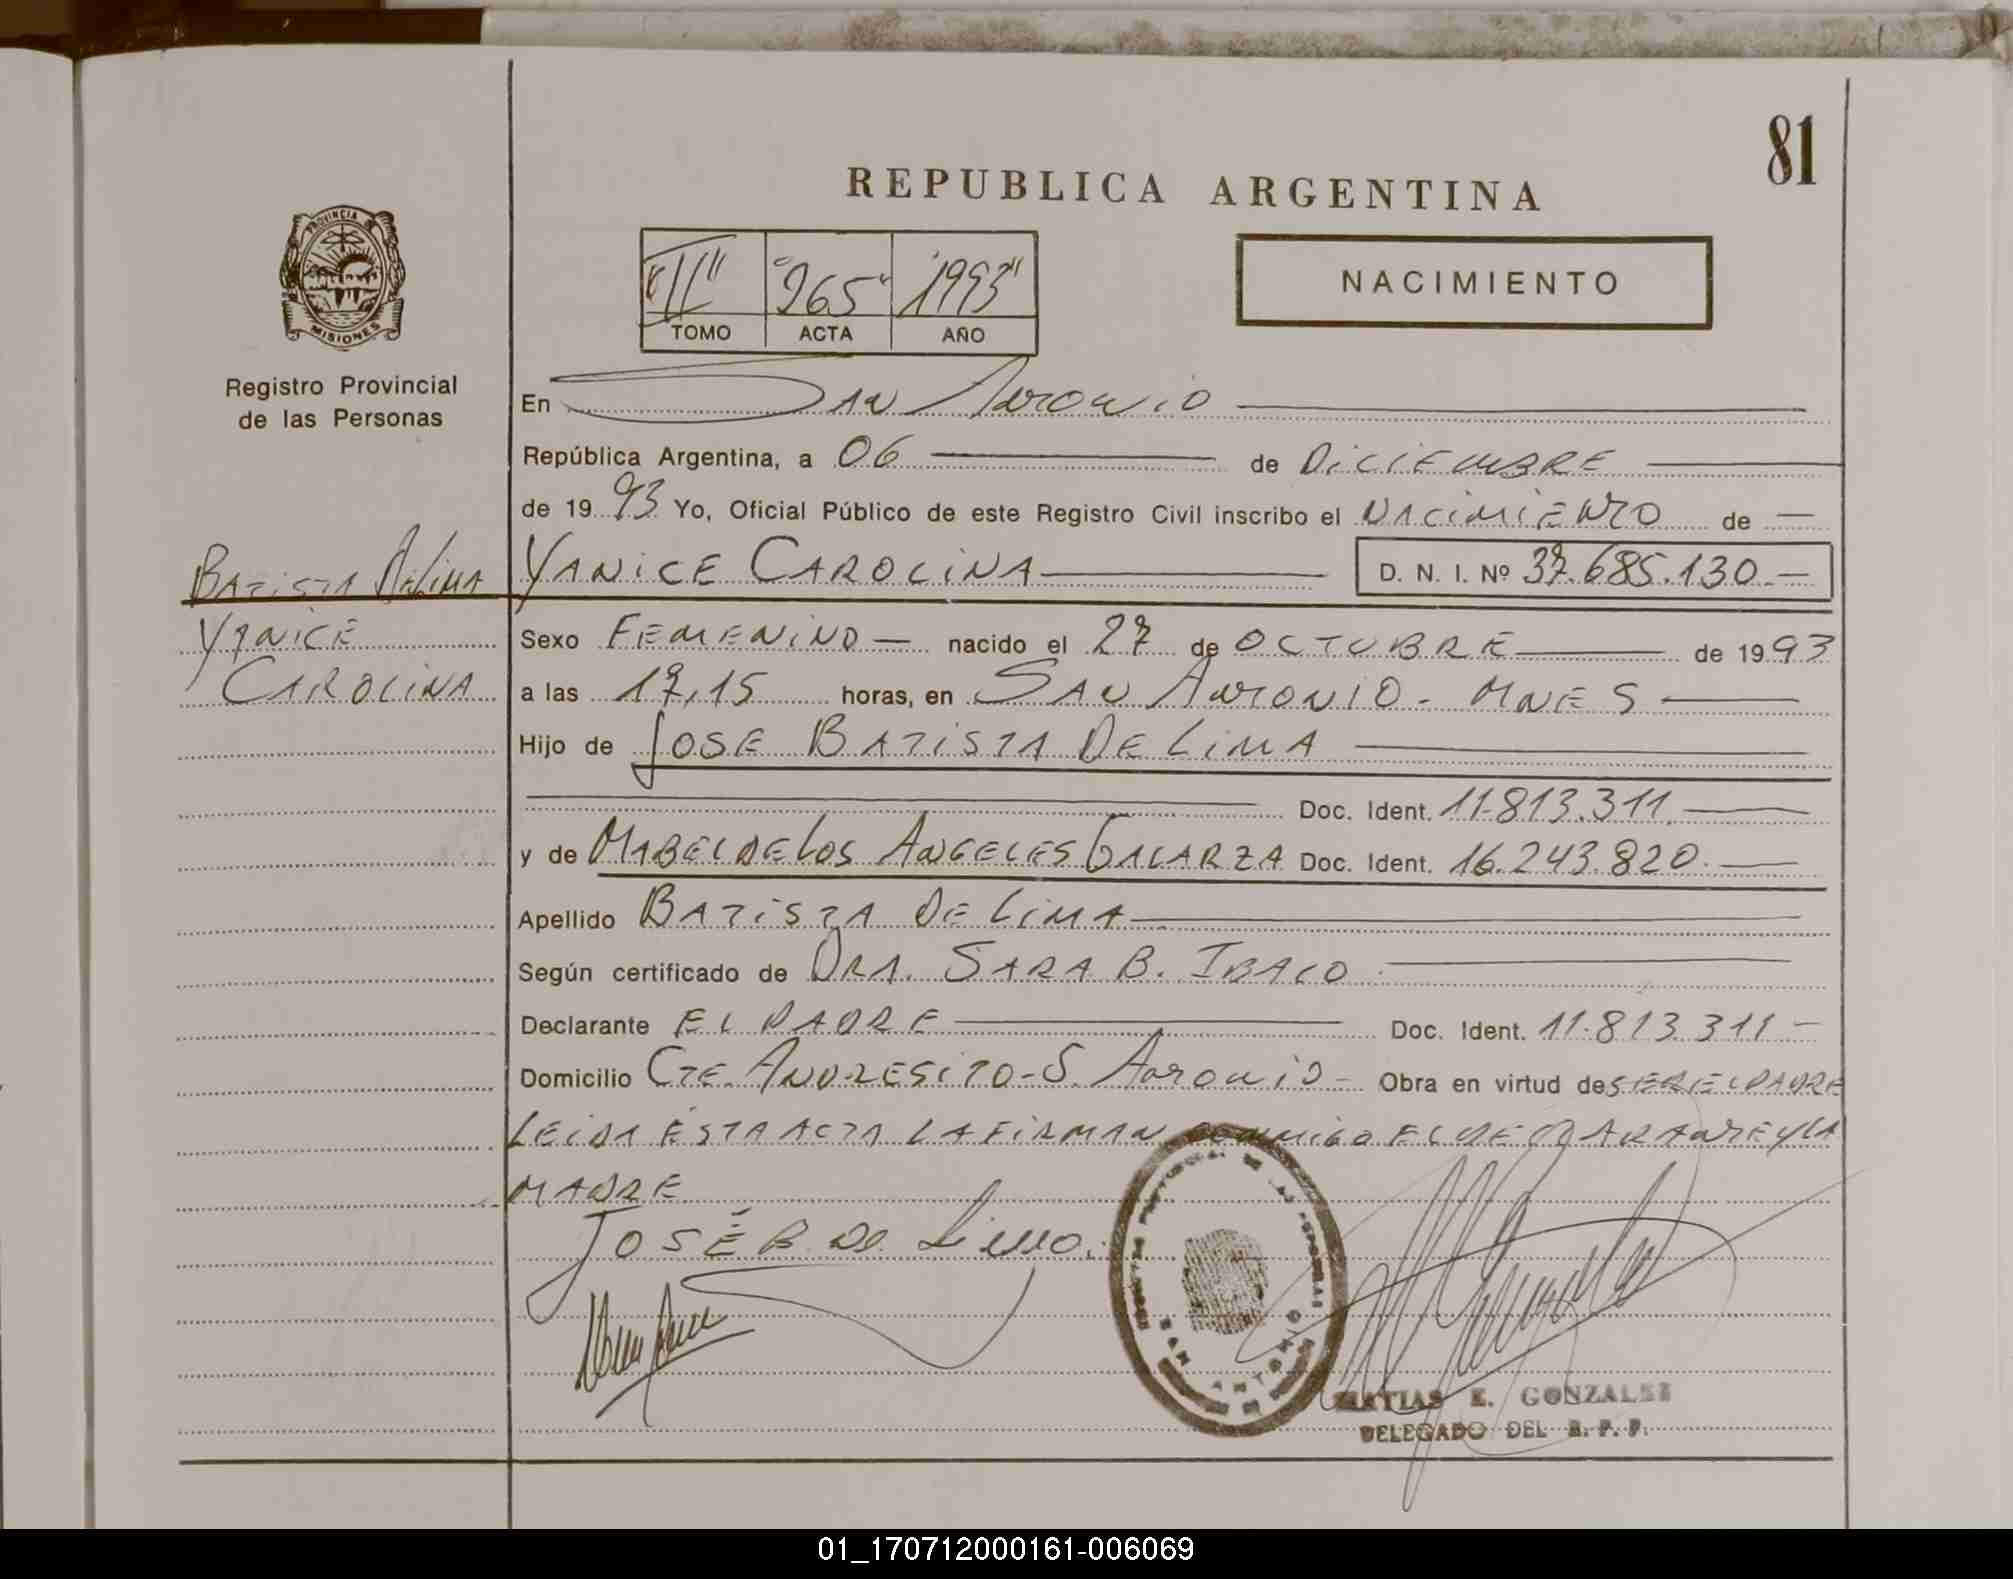 81
REPUBLICA ARGENTINA
PROVINCIA DE
MISIONES
Registro Provincial
de las Personas
"II" "265" "1993"
TOMO ACTA AÑO
NACIMIENTO
En SAN ANTONIO
República Argentina, a 06 de DICIEMBRE
de 1993 Yo, Oficial Público de este Registro Civil inscribo el NACIMIENTO de
YANICE CAROLINA D. N. I. Nº 37.685.130.-
BATISTA DELIMA
YANICE
CAROLINA
Sexo FEMENINO - nacido el 27 de OCTUBRE de 1993
a las 17,15 horas, en SAN ANTONIO - MNES
Hijo de JOSE BATISTA DE LIMA
Doc. Ident. 11.813.311.
y de MABEL DE LOS ANGELES GALARZA Doc. Ident. 16.243.820.
Apellido BATISTA DE LIMA
Según certificado de DRA. SARA B. IBALO
Declarante EL PADRE Doc. Ident. 11.813.311 -
Domicilio CTE. ANDRESITO - S. ANTONIO - Obra en virtud de SER EL PADRE
LEIDA ESTA ACTA LA FIRMAN CONMIGO EL DECLARANTE Y LA
MADRE
JOSÉ B. De Lima.
SAN ANTONIO
MATIAS E. GONZALEZ
DELEGADO DEL R. P. P.
01_170712000161-006069